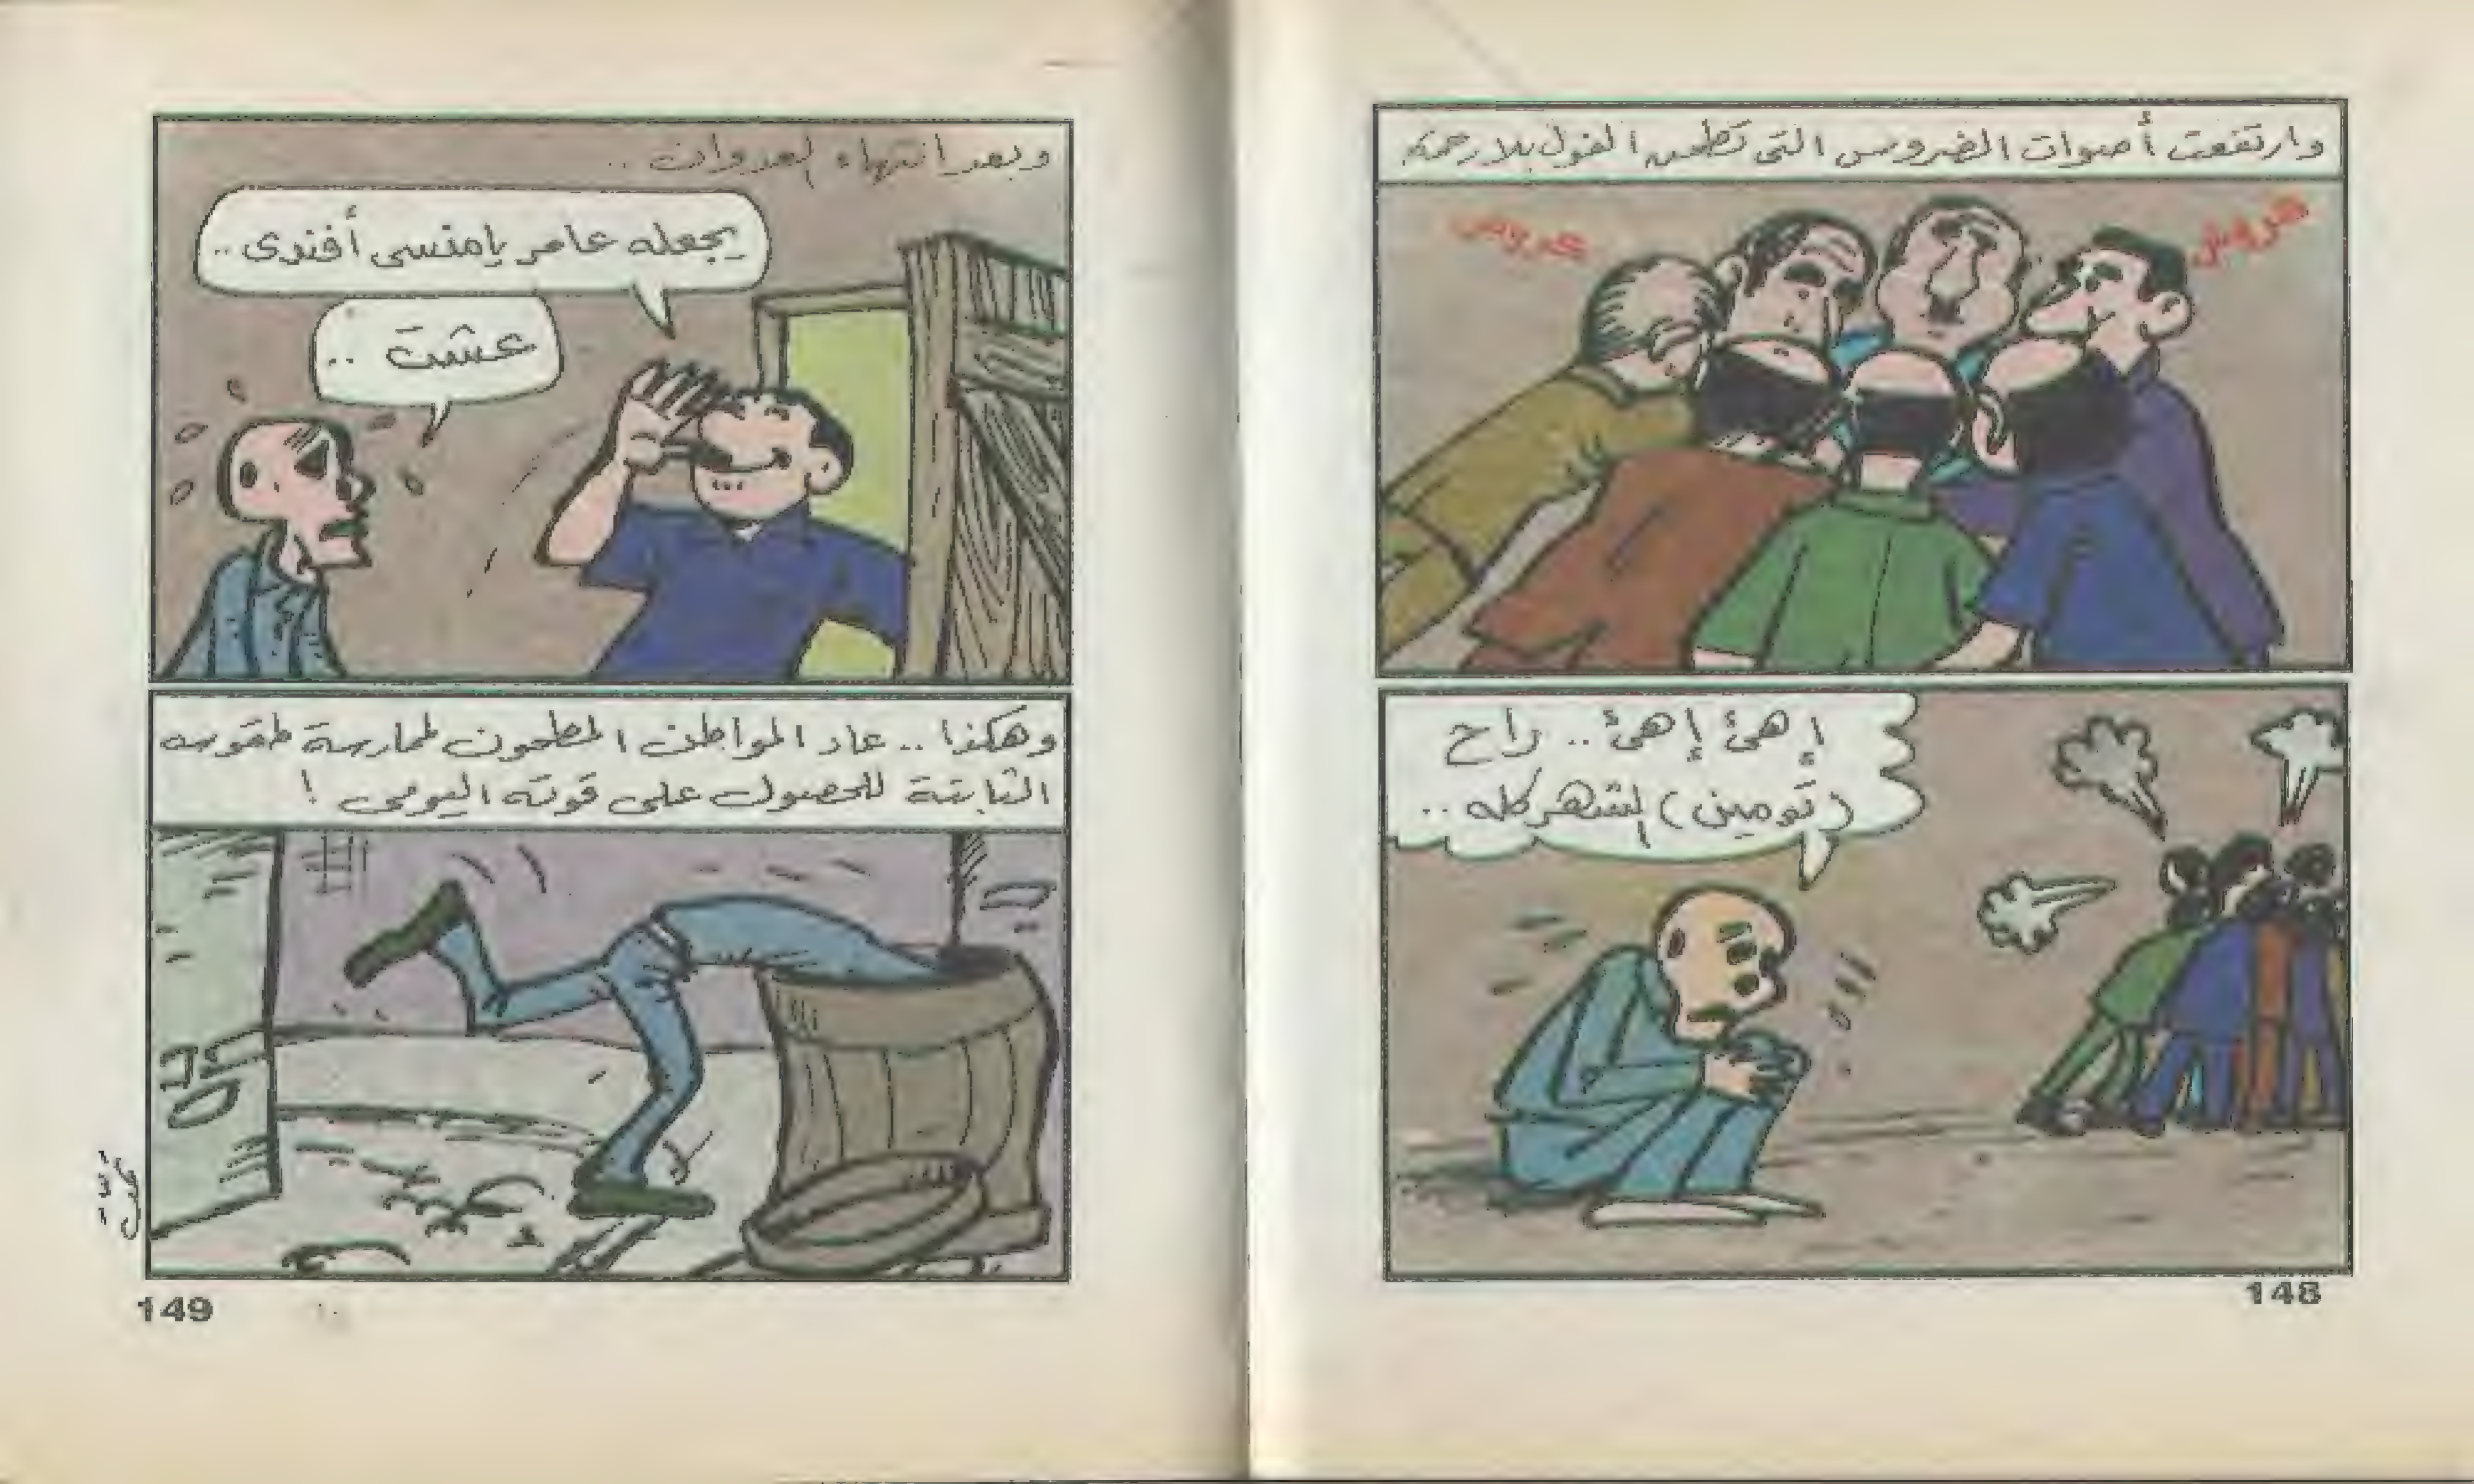 وارتفعت أصوات الضروس التى تطحن الفول بلا رحمة
هروش
هروش
إهئ إهئ.. راح
(تومين) الشهر كله ..
148
وبعد انتهاء العدوان ..
يجعله عامر يا منسى أفندى ..
عشت ..
وهكذا .. عاد المواطن المطحون لممارسة طقوسه
الثابتة للحصول على قوته اليومى !
149